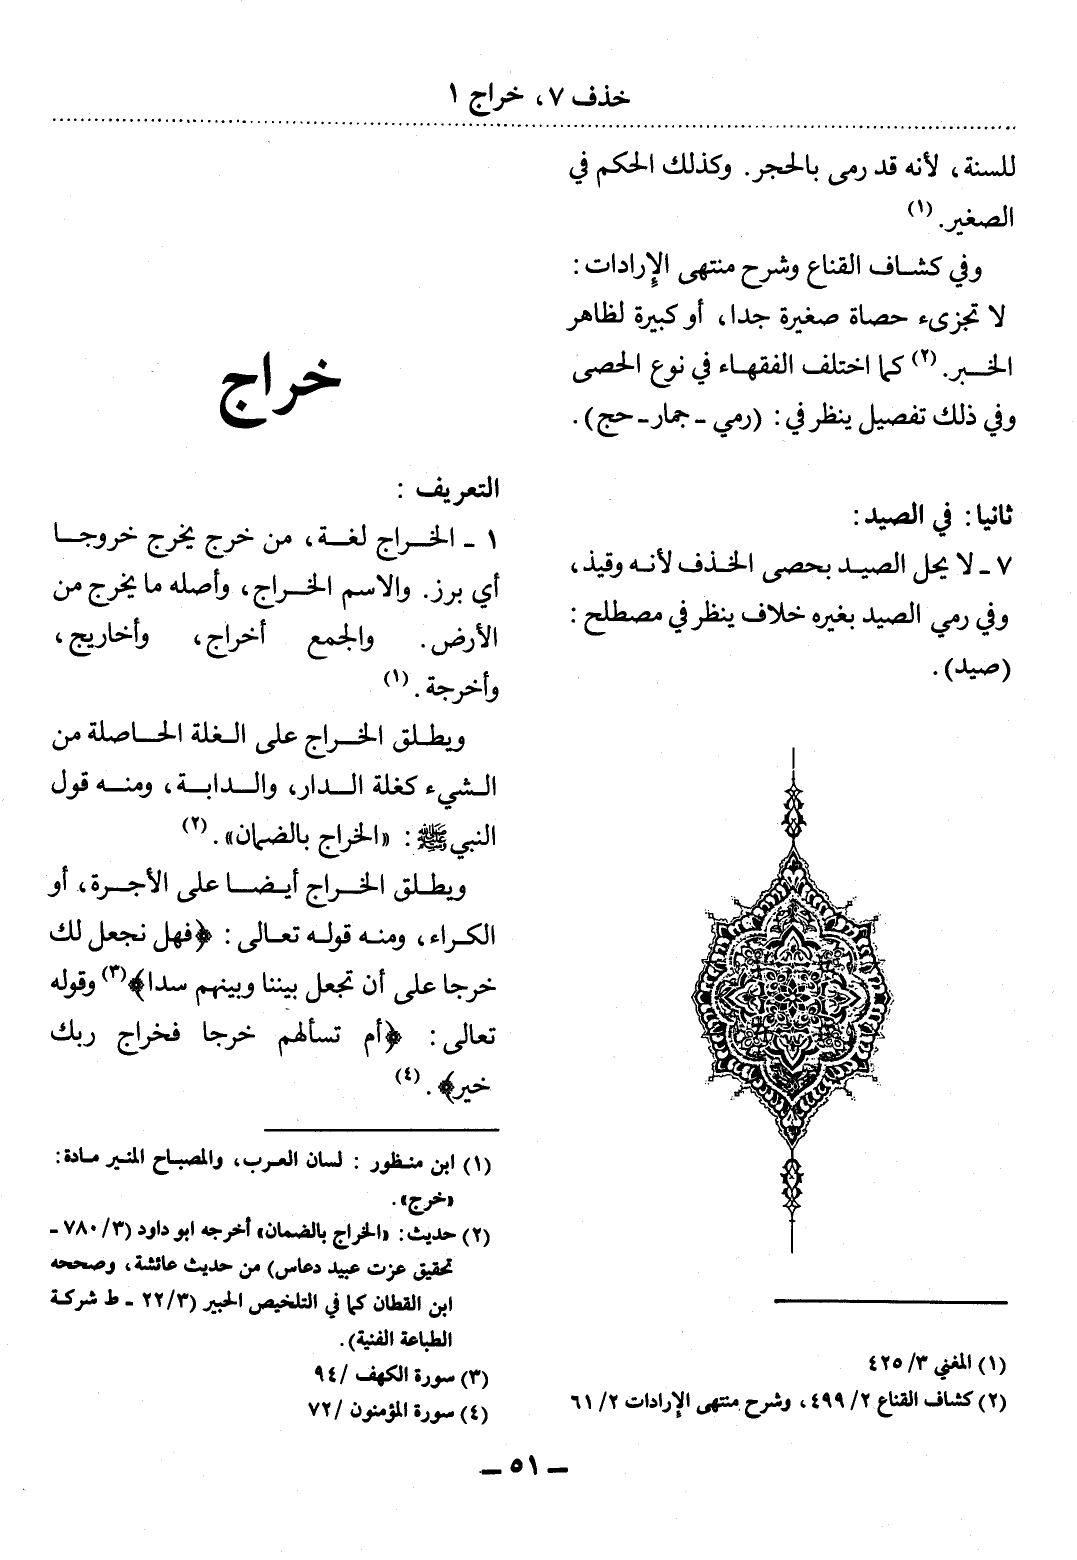 خذف ٧، خراج ١
للسنة، لأنه قد رمى بالحجر. وكذلك الحكم في
الصغير. (١)
وفي كشاف القناع وشرح منتهى الإرادات:
لا تجزىء حصاة صغيرة جدا، أو كبيرة لظاهر
الخبر. (٢) كما اختلف الفقهاء في نوع الحصى
وفي ذلك تفصيل ينظر في: (رمي ـ جمار ـ حج).
ثانيا: في الصيد:
٧ ـ لا يحل الصيد بحصى الخذف لأنه وقيذ،
وفي رمي الصيد بغيره خلاف ينظر في مصطلح:
(صيد).
(١) المغني ٣/ ٤٢٥
(٢) كشاف القناع ٢/ ٤٩٩، وشرح منتهى الإرادات ٢/ ٦١
خراج
التعريف:
١ ـ الخراج لغة، من خرج يخرج خروجا
أي برز. والاسم الخراج، وأصله ما يخرج من
الأرض. والجمع أخراج، وأخاريج،
وأخرجة. (١)
ويطلق الخراج على الغلة الحاصلة من
الشيء كغلة الدار، والدابة، ومنه قول
النبي ﷺ: «الخراج بالضمان». (٢)
ويطلق الخراج أيضا على الأجرة، أو
الكراء، ومنه قوله تعالى: ﴿فهل نجعل لك
خرجا على أن تجعل بيننا وبينهم سدا﴾(٣) وقوله
تعالى: ﴿أم تسألهم خرجا فخراج ربك
خير﴾. (٤)
(١) ابن منظور: لسان العرب، والمصباح المنير مادة:
«خرج».
(٢) حديث: «الخراج بالضمان» أخرجه ابو داود (٣/ ٧٨٠ ـ
تحقيق عزت عبيد دعاس) من حديث عائشة، وصححه
ابن القطان كما في التلخيص الحبير (٣/ ٢٢ ـ ط شركة
الطباعة الفنية).
(٣) سورة الكهف / ٩٤
(٤) سورة المؤمنون / ٧٢
ـ ٥١ ـ